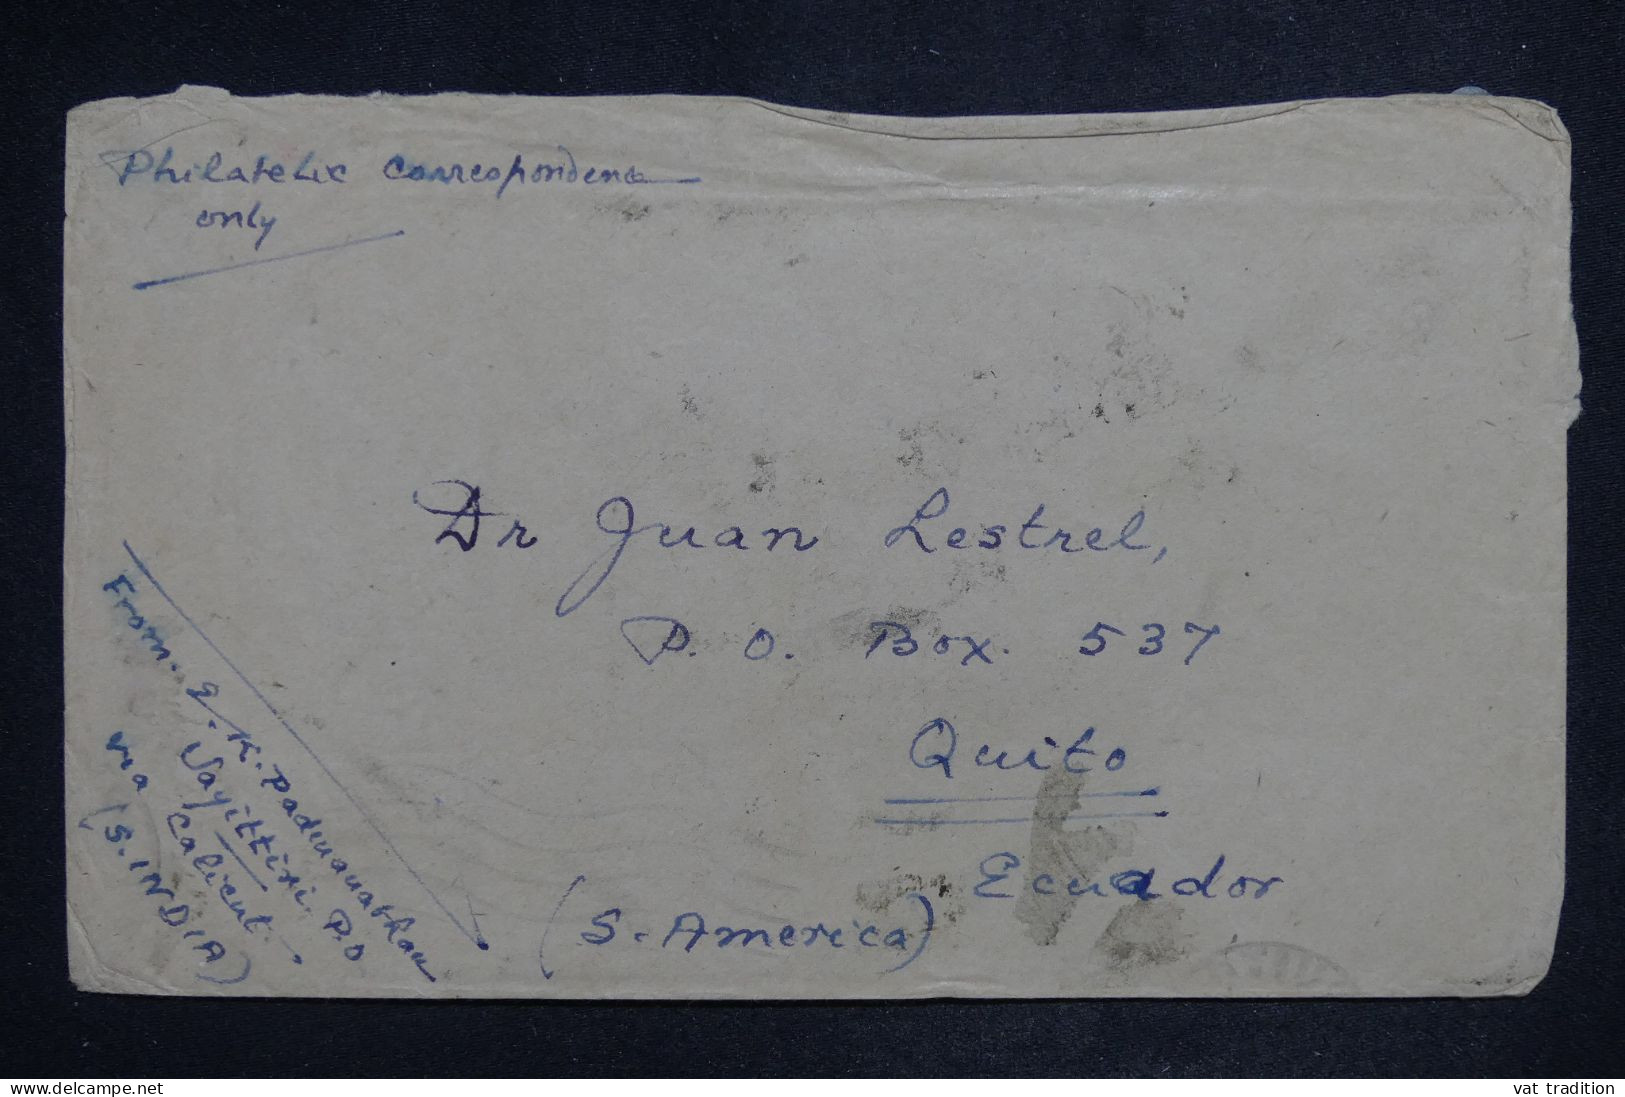 Philatelic correspondence
only
Dr Juan Lestrel,
P. O. Box. 537
Quito
Ecuador
(S. America)
From. K. Padmanabhan
Nayittini. P.O
via Calicut.
(S. INDIA)
www.delcampe.net
vat tradition